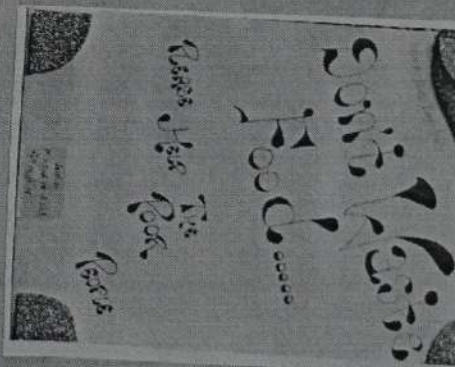 Don't Waste
Food......
Please Help The
Poor
People